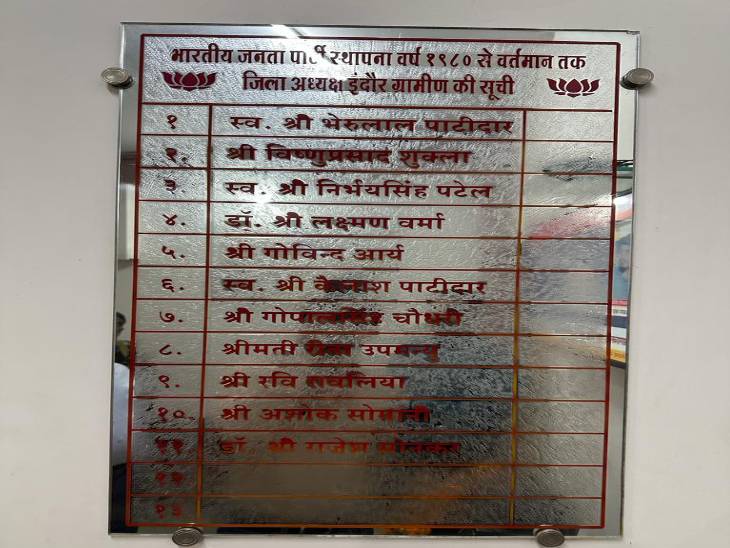 भारतीय जनता पार्टी स्थापना वर्ष १९८० से वर्तमान तक
जिला अध्यक्ष इंदौर ग्रामीण की सूची
१ स्व. श्री भेरुलाल पाटीदार
२. श्री विष्णुप्रसाद शुक्ला
३. स्व. श्री निर्भयसिंह पटेल
४. डॉ. श्री लक्ष्मण वर्मा
५. श्री गोविन्द आर्य
६. स्व. श्री कैलाश पाटीदार
७. श्री गोपालसिंह चौधरी
८. श्रीमती उपमन्यु
९. श्री रवि रावलिया
१०. श्री अशोक सोमानी
११ डॉ. श्री राजेश सोनकर
१२
१३